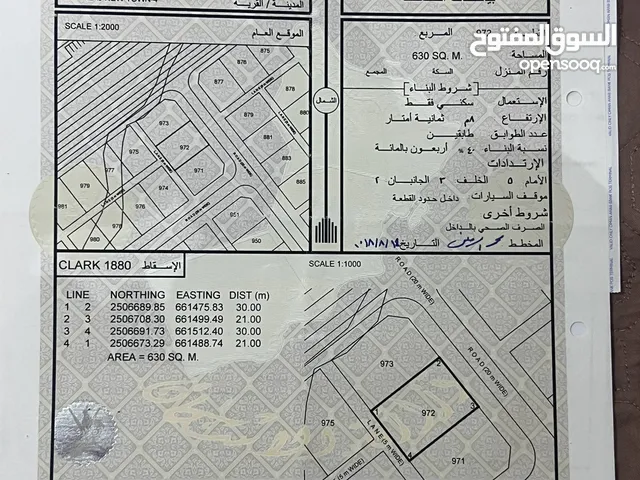 السوق المفتوح
opensooq.com
المدينة / القرية
SCALE 1:2000
الموقع العام
المربع 972
المساحة 630 SQ. M.
رقم المنزل السكة المجمع
شروط البناء
الإستعمال سكني فقط
الإرتفاع ٨م ثمانية أمتار
عدد الطوابق طابقين
نسبة البناء ٤٠٪ أربعون بالمائة
الإرتدادات
الأمام ٥ الخلف ٣ الجانبان ٢
موقف السيارات داخل حدود القطعة
شروط أخرى
الصرف الصحي بالداخل
المخطط التاريخ
الشمال
876
878
877
880
881
883
885
975
973
972
971
974
976
977
979
978
981
980
951
950
CLARK 1880 الإسقاط
SCALE 1:1000
LINE NORTHING EASTING DIST (m)
1 2 2506689.85 661475.83 30.00
2 3 2506708.30 661499.49 21.00
3 4 2506691.73 661512.40 30.00
4 1 2506673.29 661488.74 21.00
AREA = 630 SQ. M.
ROAD (20 m WIDE)
ROAD (20 m WIDE)
973
2
972
1
3
4
975
971
LANE (5 m WIDE)